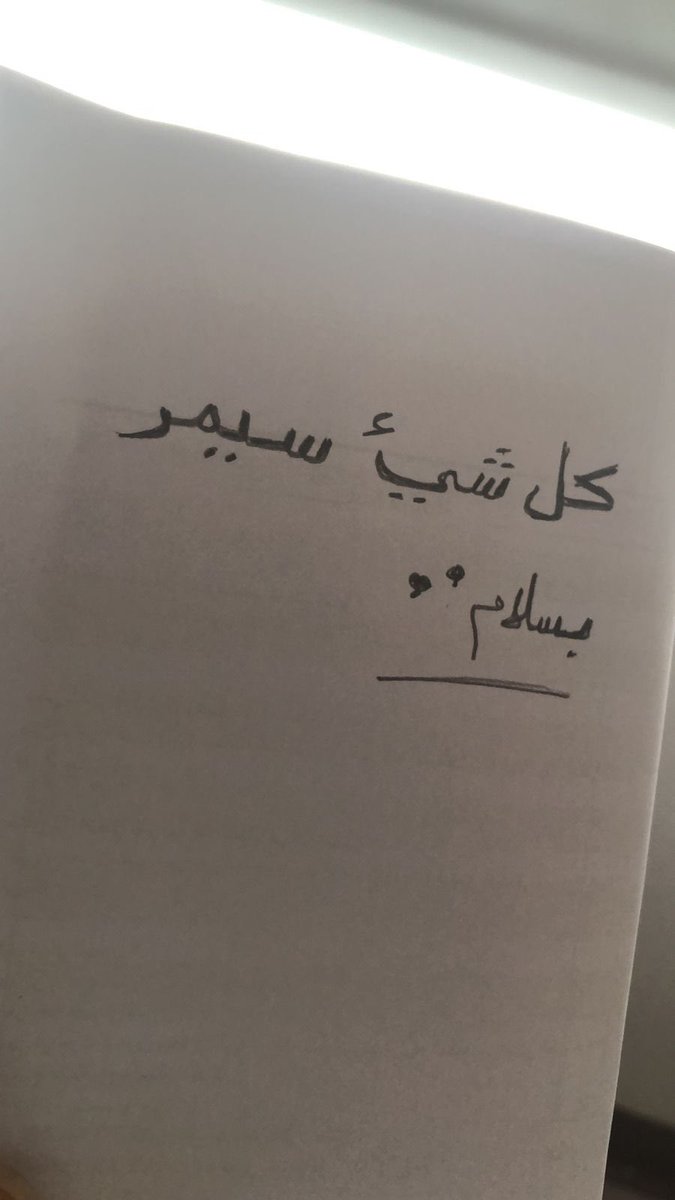 كل شيئ سيمر
بسلام..